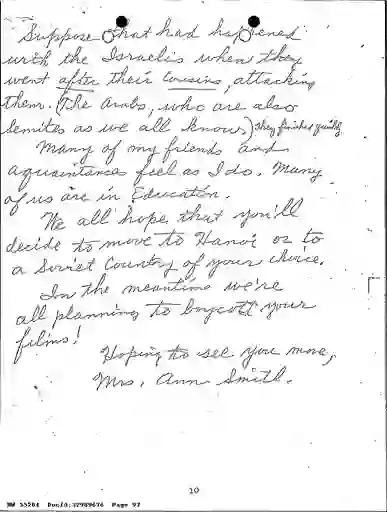 Suppose that had happened
with the Israelis when they
went after their cousins, attacking
them. (The Arabs, who are also
Semites as we all know.) They finished quickly
Many of my friends and
aquaintances feel as I do. Many
of us are in Education.
We all hope that you'll
decide to move to Hanoi or to
a Soviet Country of your choice.
In the meantime we're
all planning to boycott your
films!
Hoping to see you move,
Mrs. Ann Smith.
10
NW 55204 DocId:32989676 Page 97